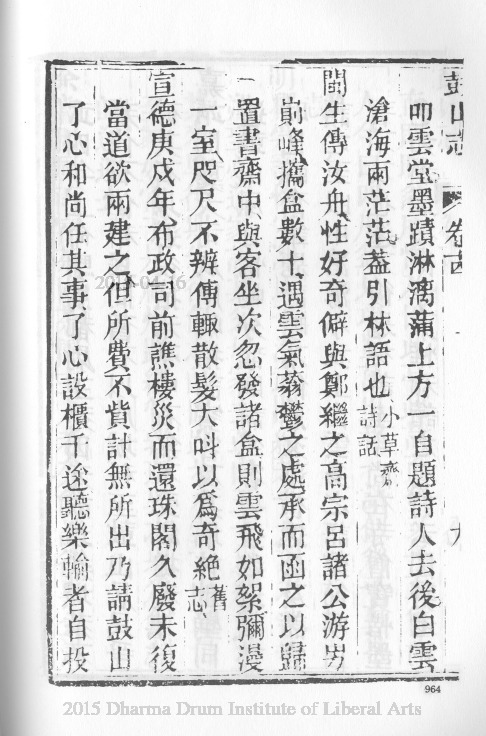 鼓山志 卷十四 九
叩雲堂墨蹟淋漓蒲上方一自題詩人去後白雲
滄海兩茫茫葢引林語也小草齋詩話
閩生傳汝舟性好奇僻與鄭繼之高宗呂諸公游
峝峰攜盆數十遇雲氣蓊鬱之處承而函之以歸
置書齋中與客坐次忽發諸盆則雲飛如絮彌漫
一室咫尺不辨傳輙散髮大呌以爲奇絶舊志
宣德庚戌年布政司前譙樓災而還珠閣久廢未復
當道欲兩建之但所費不貲計無所出乃請鼓山
了心和尚任其事了心設櫃千途聽樂輸者自投
2015-04-16
964
2015 Dharma Drum Institute of Liberal Arts